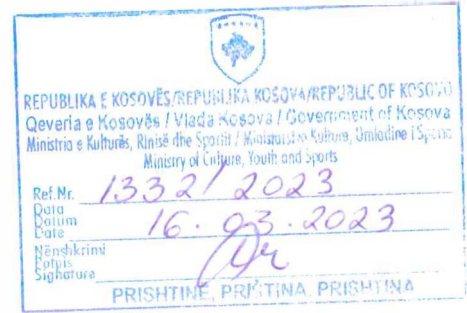 REPUBLIKA E KOSOVËS/REPUBLIKA KOSOVA/REPUBLIC OF KOSOVO
Qeveria e Kosovës / Vlada Kosova / Government of Kosova
Ministria e Kulturës, Rinisë dhe Sportit / Ministarstvo Kulture, Omladine i Sporta
Ministry of Culture, Youth and Sports
Ref.Nr. 1332/2023
Data
Datum
Date 16.03.2023
Nënshkrimi
Potpis
Signature
PRISHTINË, PRIŠTINA, PRISHTINA